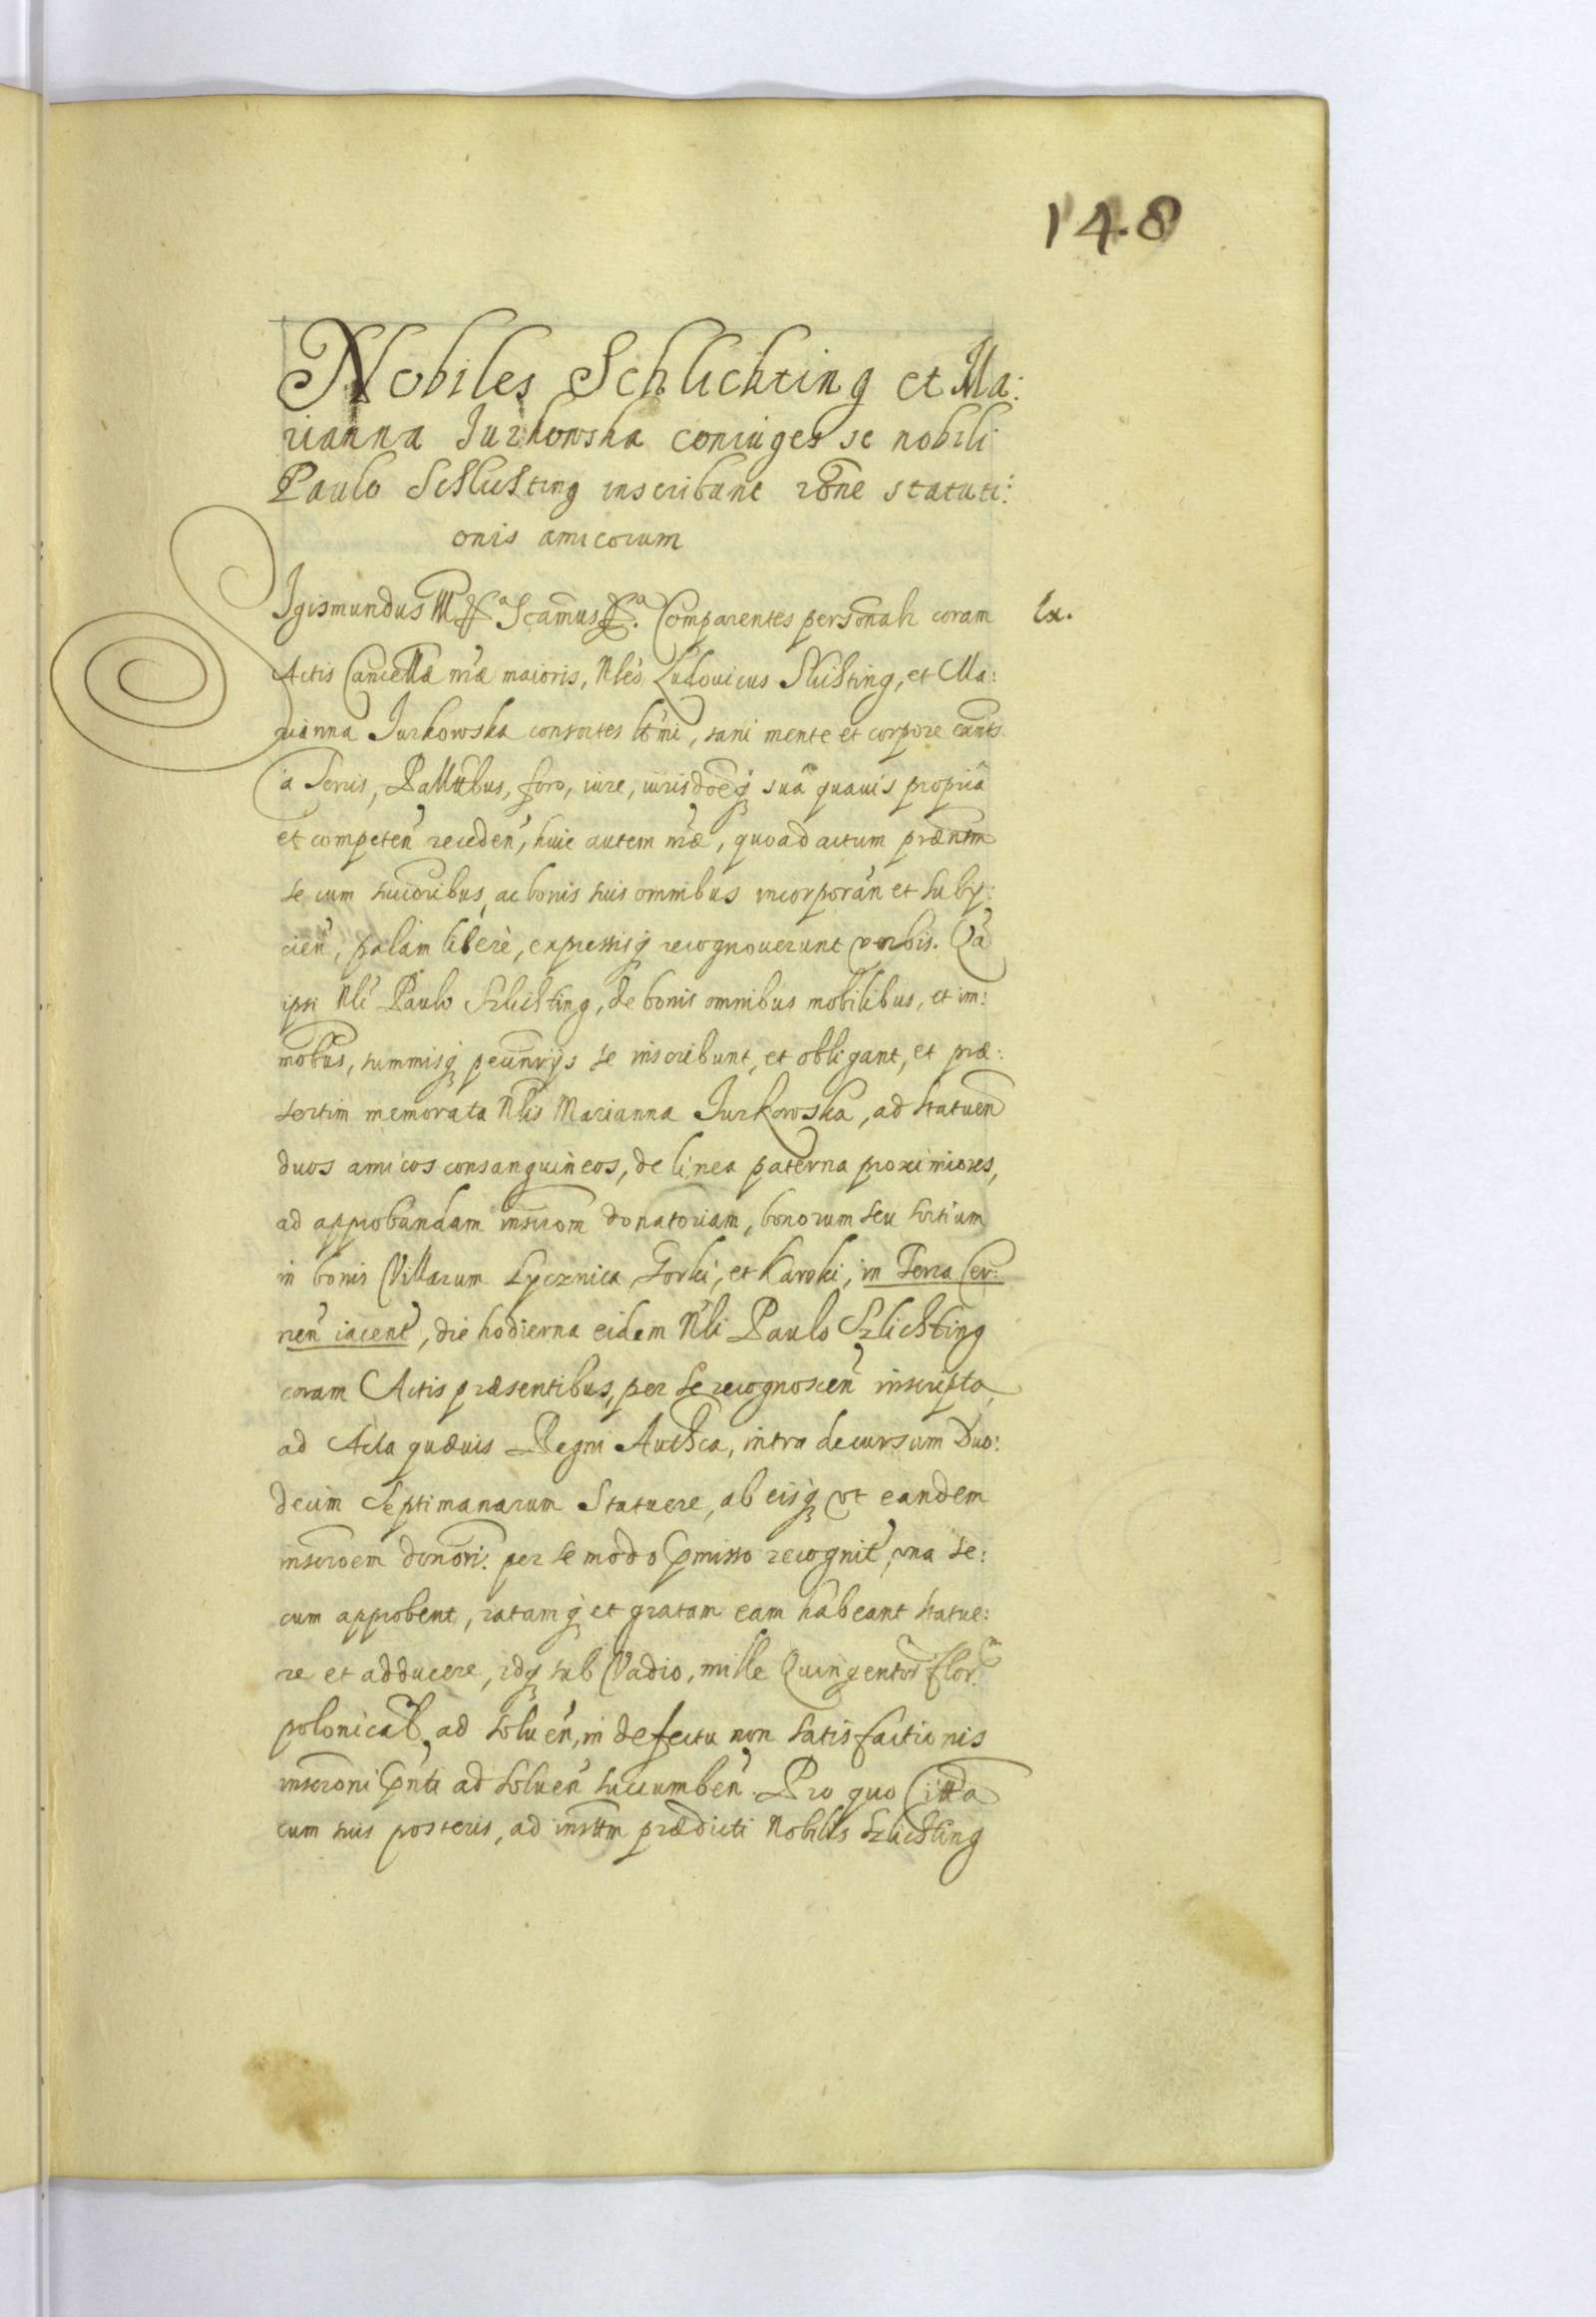 148
Nobiles Schlichting et Ma:
rianna Jurkowska coniuges se nobili
Paulo Schlichting inscribunt rõne statuti:
onis amicorum
Sigismundus III Scãmus Comparentes personalr coram
Ex.
Actis Cancellæ nræ maioris, Nles Ludouicus Slichting, et Ma:
rianna Jurkowska consortes ltmi, sani mente et corpore exnts
a Terris, Pallatibus, foro, iure, iurisdoeq; suâ quauis propriâ
et competeñ recedeñ, huic autem nræ, quoad actum præntm
se cum succoribus, ac bonis suis omnibus incorporañ et subij:
cieñ, palam liberè, expressisq; recognouerunt verbis. Qa
ipsi Nli Paulo Szlichting, de bonis omnibus mobilibus, et im:
mobus, summisq; pecunrijs se inscribunt, et obligant, et præ:
sertim memorata Nlis Marianna Jurkowska, ad statueñ
duos amicos consanguineos, de linea paterna proximiores,
ad approbandam inscrom donatoriam, bonorum seu sortium
in bonis Villarum Lycznica, Gorki, et Karoki, in Terra Cer:
neñ iacent, die hodierna eidem Nli Paulo Szlichting
coram Actis præsentibus, per se recognosceñ inscripta,
ad Acta quæuis Regni Authca, intra decursum Duo:
decim Septimanarum Statuere, ab eisq; vt eandem
inscroem donori: per se modo pmisso recognit, vna se:
cum approbent, ratamq; et gratam eam habeant statue:
re et adducere, idq; sub Vadio, mille Quingentor flor.
polonical, ad solueñ, in defectu non satisfactionis
inscroni pnti ad solueñ succumbeñ. Pro quo Citta
cum suis posteris, ad insttm prædicti Nobilis Szlichting